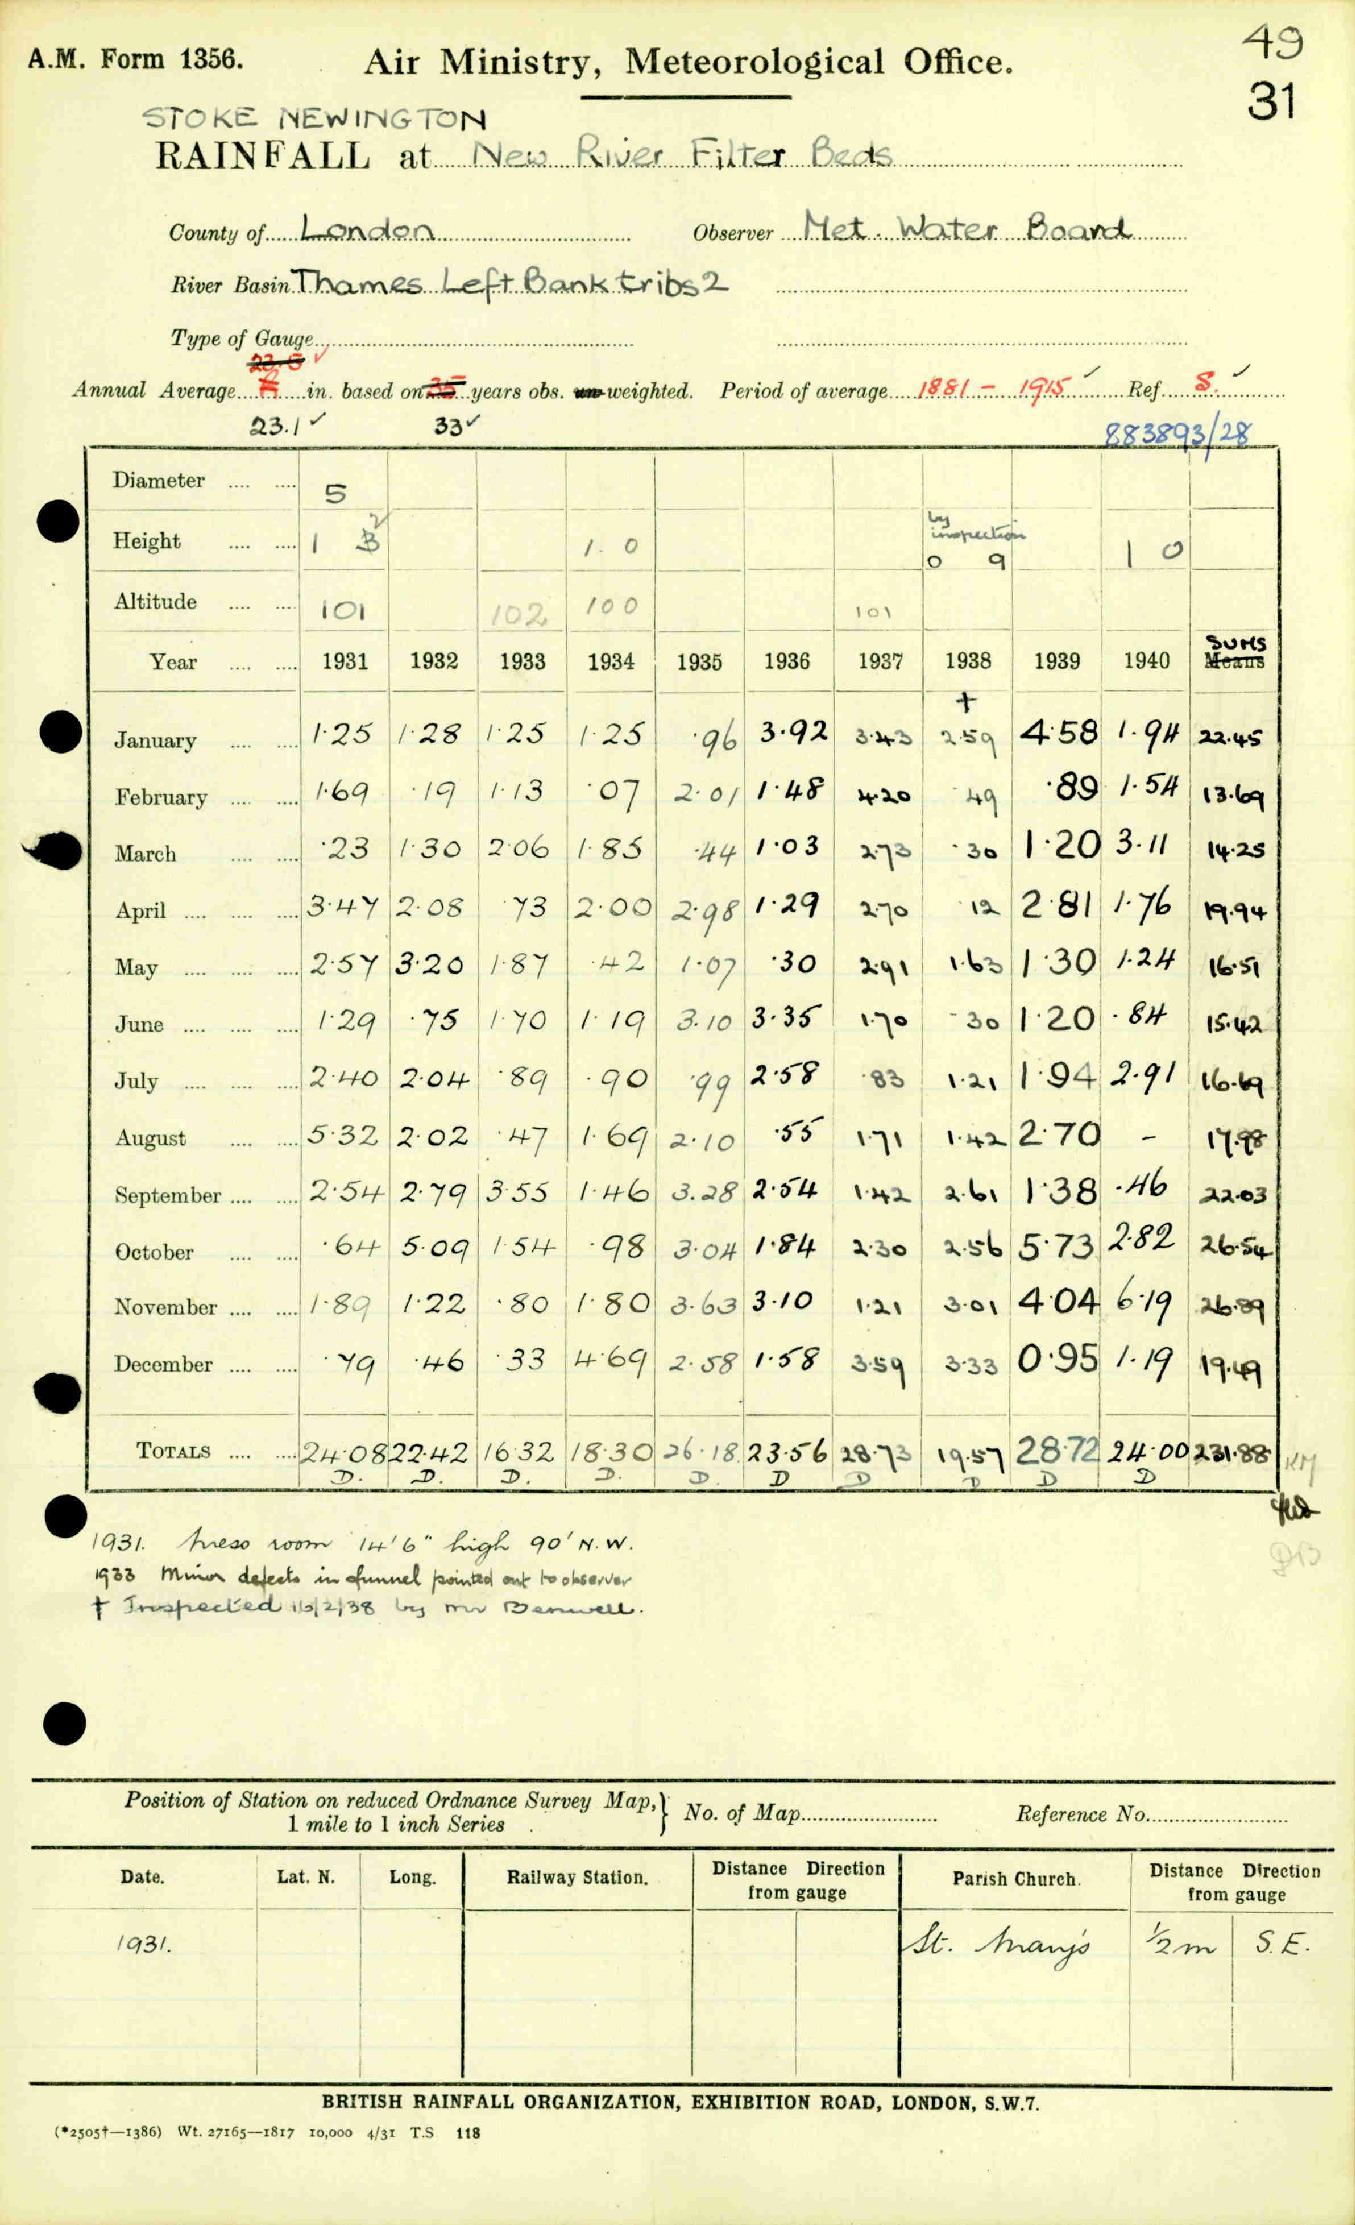 49
A.M. Form 1356. Air Ministry, Meteorological Office.
31
STOKE NEWINGTON
RAINFALL at New River Filter Beds
County of London Observer Met. Water Board
River Basin Thames Left Bank tribs 2
Type of Gauge
23.5 ✓
Annual Average in. based on 35 years obs. un-weighted. Period of average 1881 - 1915 ✓ Ref. S. ✓
23.1 ✓ 33 ✓
883893/28
Diameter .... .... 5
Height .... .... 1 B 2 1. 0 by inspection 0 9 1 0
Altitude .... .... 101 102 100 101
Year .... .... 1931 1932 1933 1934 1935 1936 1937 1938 1939 1940 SUMS Means
+
January .... .... 1.25 1.28 1.25 1.25 .96 3.92 3.43 2.59 4.58 1.94 22.45
February .... .... 1.69 .19 1.13 .07 2.01 1.48 4.20 .49 .89 1.54 13.69
March .... .... .23 1.30 2.06 1.85 .44 1.03 2.73 .30 1.20 3.11 14.25
April .... .... .... 3.47 2.08 .73 2.00 2.98 1.29 2.70 .12 2.81 1.76 19.94
May .... .... .... 2.57 3.20 1.87 .42 1.07 .30 2.91 1.63 1.30 1.24 16.51
June .... .... .... 1.29 .75 1.70 1.19 3.10 3.35 1.70 .30 1.20 .84 15.42
July .... .... .... 2.40 2.04 .89 .90 .99 2.58 .83 1.21 1.94 2.91 16.69
August .... .... 5.32 2.02 .47 1.69 2.10 .55 1.71 1.42 2.70 - 17.98
September .... .... 2.54 2.79 3.55 1.46 3.28 2.54 1.42 2.61 1.38 .46 22.03
October .... .... .64 5.09 1.54 .98 3.04 1.84 2.30 2.56 5.73 2.82 26.54
November .... .... 1.89 1.22 .80 1.80 3.63 3.10 1.21 3.01 4.04 6.19 26.89
December .... .... .79 .46 .33 4.69 2.58 1.58 3.59 3.33 0.95 1.19 19.49
TOTALS .... .... 24.08 22.42 16.32 18.30 26.18 23.56 28.73 19.57 28.72 24.00 231.88 KM
D. D. D. D. D. D D D D D
DB
1931. Mess room 14'6" high 90' N.W.
1933 Minor defects in funnel pointed out to observer
† Inspected 16/2/38 by Mr Benwell.
Position of Station on reduced Ordnance Survey Map, } No. of Map Reference No.
1 mile to 1 inch Series
Date. Lat. N. Long. Railway Station. Distance Direction from gauge Parish Church. Distance Direction from gauge
1931. St. Mary's ½ m S.E.
BRITISH RAINFALL ORGANIZATION, EXHIBITION ROAD, LONDON, S.W.7.
(*2505†—1386) Wt. 27165—1817 10,000 4/31 T.S 118